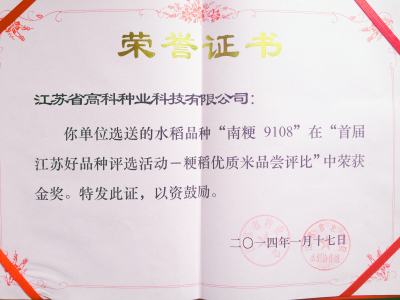 荣誉证书
江苏省高科种业科技有限公司：
你单位选送的水稻品种“南粳 9108”在“首届
江苏好品种评选活动－粳稻优质米品尝评比”中荣获
金奖。特发此证，以资鼓励。
二〇一四年一月十七日